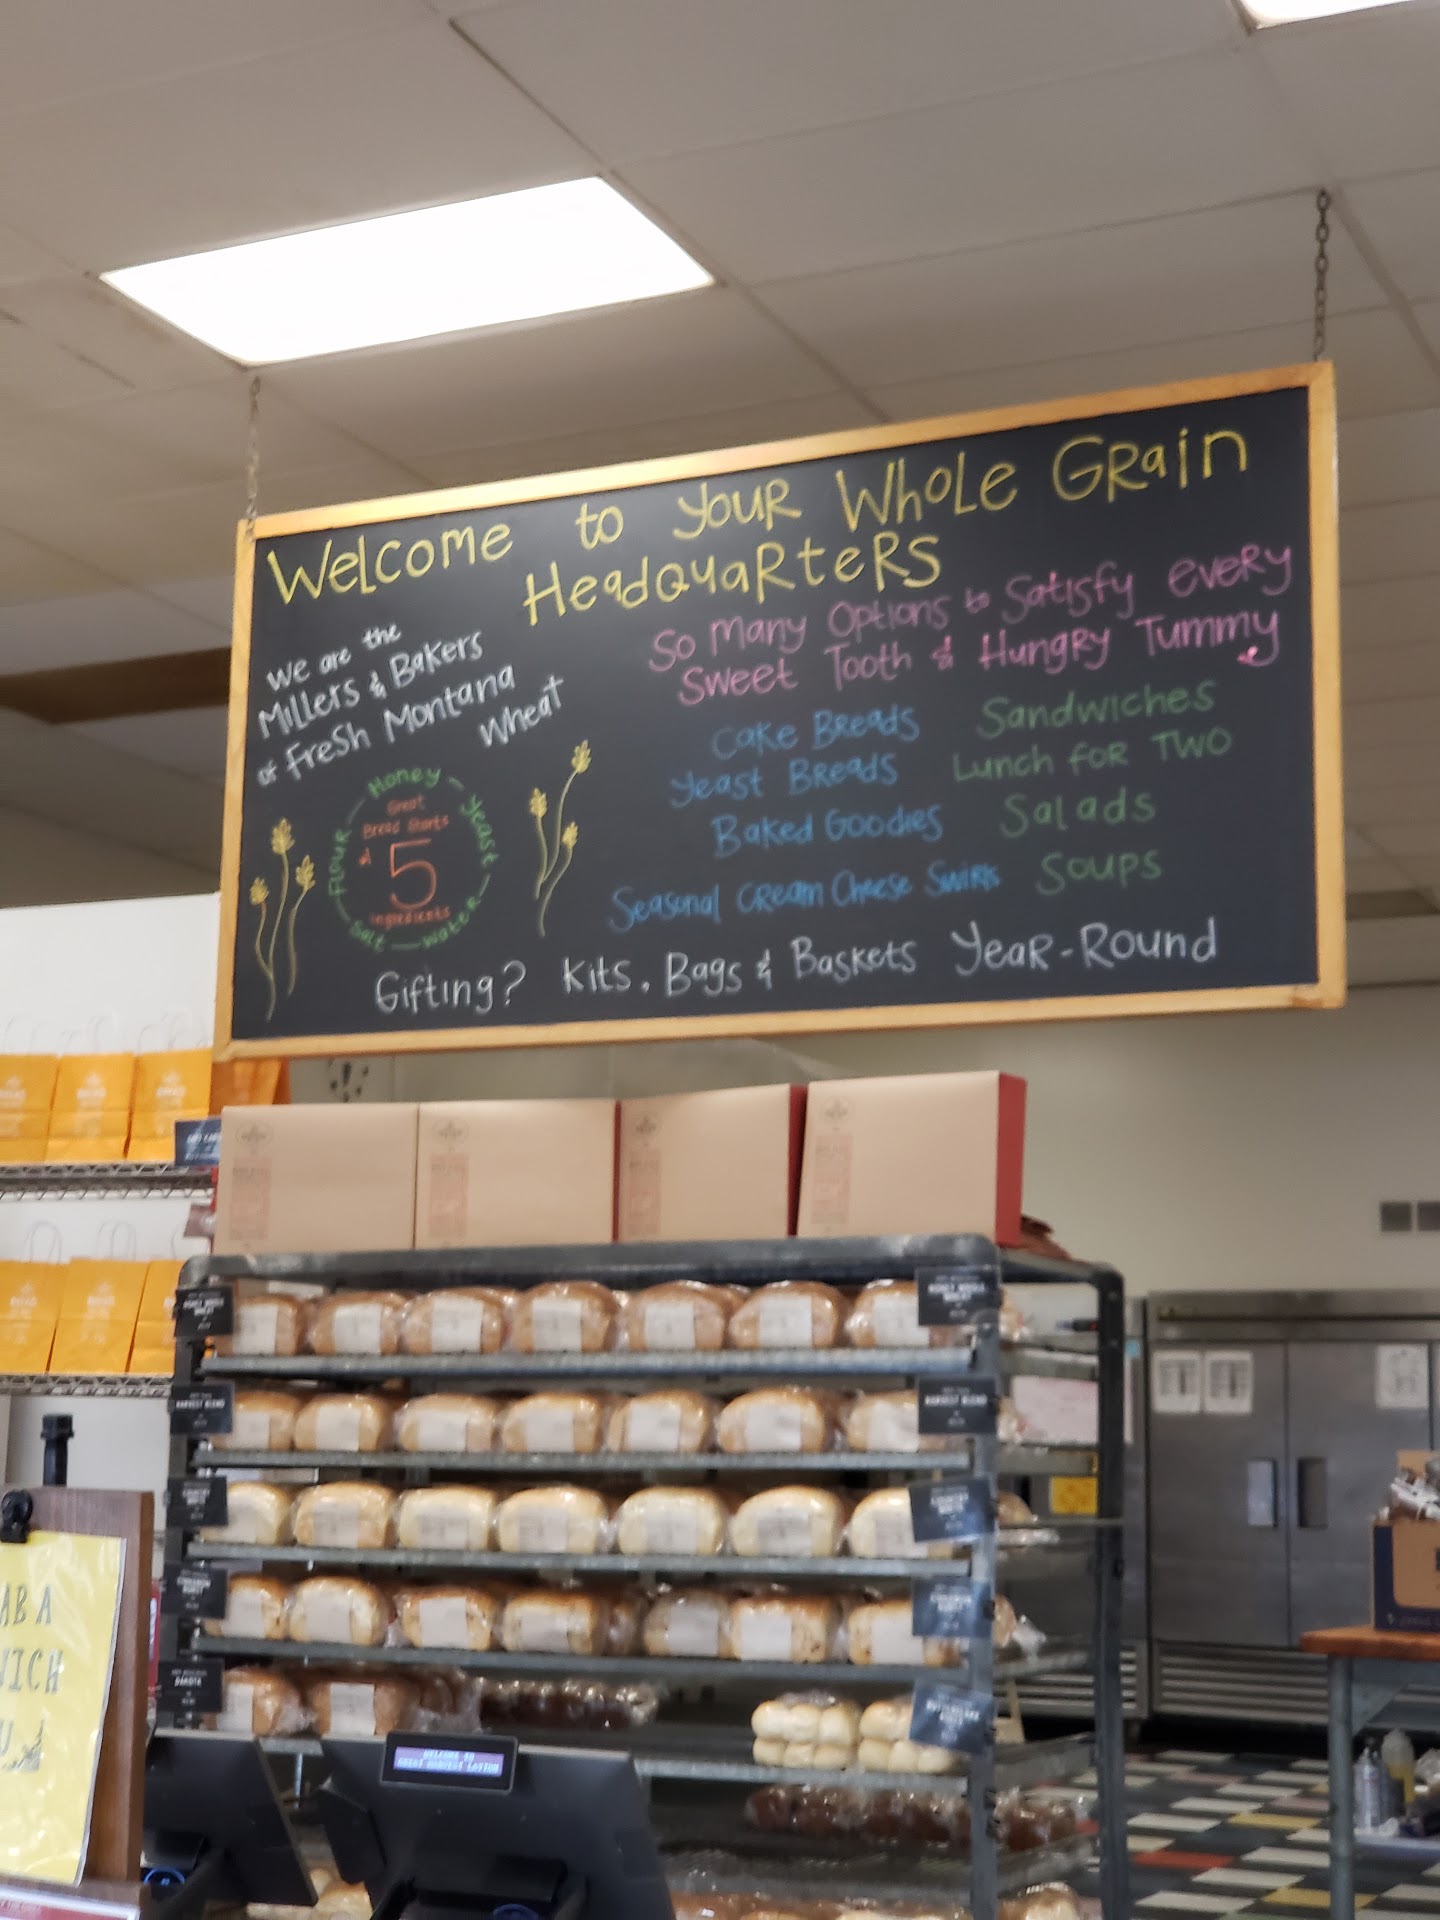 Welcome to your Whole Grain
Headquarters
We are the
Millers & Bakers
of Fresh Montana
Wheat
Honey
Yeast
Water
Salt
Flour
Great
Bread Starts
5
ingredients
So Many Options to Satisfy every
Sweet Tooth & Hungry Tummy
Cake Breads
Yeast Breads
Baked Goodies
Seasonal Cream Cheese Swirls
Sandwiches
Lunch for TWO
Salads
Soups
Gifting? Kits, Bags & Baskets Year-Round
HONEY WHOLE
WHEAT
HARVEST BLEND
HARVEST BLEND
CINNAMON
DAKOTA
WELCOME TO
GREAT HARVEST LAYTON
AB A
WICH
U